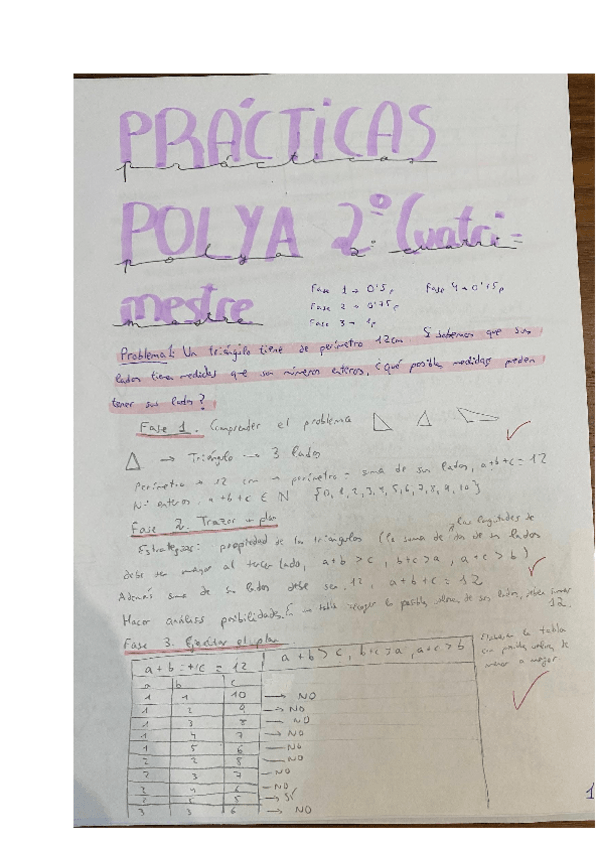 PRÁCTICAS
prácticas
POLYA 2º Cuatri-
polya 2º cuatri
mestre
mestre
Fase 1 → 0'5p Fase 4 → 0'75p
Fase 2 → 0'75p
Fase 3 → 1p
Problema 1: Un triángulo tiene de perímetro 12cm Si sabemos que sus
lados tienen medidas que son números enteros, ¿qué posibles medidas pueden
tener sus lados?
Fase 1. Comprender el problema
→ Triángulo → 3 lados
Perímetro → 12 cm → perímetro = suma de sus lados, a+b+c = 12
Nº enteros, a+b+c ∈ N {0, 1, 2, 3, 4, 5, 6, 7, 8, 9, 10}
Fase 2. Trazar plan
las longitudes de
Estrategias: propiedad de los triángulos (la suma de dos de sus lados
debe ser mayor al tercer lado, a+b > c, b+c > a, a+c > b)
Además suma de sus lados debe ser 12, a+b+c = 12
Hacer análisis posibilidades. En una tabla recoger los posibles valores de sus lados, deben sumar
12.
Fase 3. Ejecutar el plan
la tabla
con posibles valores de
menor a mayor
a + b + c = 12 a + b > c, b+c > a, a+c > b
a b c
1 1 10 → NO
1 2 9 → NO
1 3 8 → NO
1 4 7 → NO
1 5 6 — NO
2 2 8 — NO
2 3 7 — NO
4 6 — NO
5 5 → SÍ
3 3 6 → NO
1